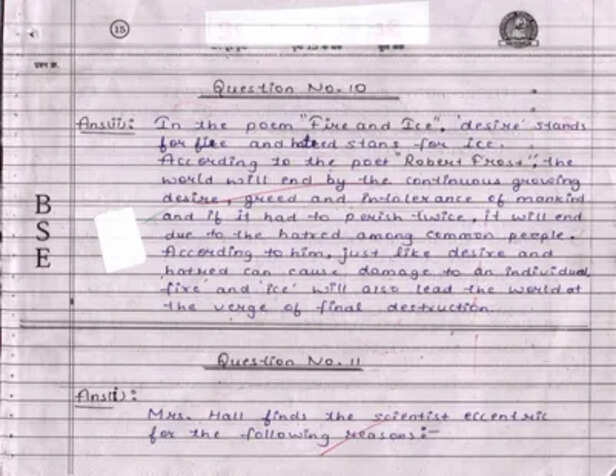 15
प्रश्न क्र.
Question No. 10
Ans(i): In the poem "Fire and Ice", 'desire' stands
for fire and hatred stans for Ice.
According to the poet "Robert Frost", the
world will end by the continuous growing
desire, greed and intolerance of mankind
and if it had to perish twice, it will end
due to the hatred among common people.
According to him, just like desire and
hatred can cause damage to an individual,
'fire' and 'ice' will also lead the world at
the verge of final destruction.
B
S
E
Question No. 11
Ans(i):
Mrs. Hall finds the scientist eccentric
for the following reasons:-